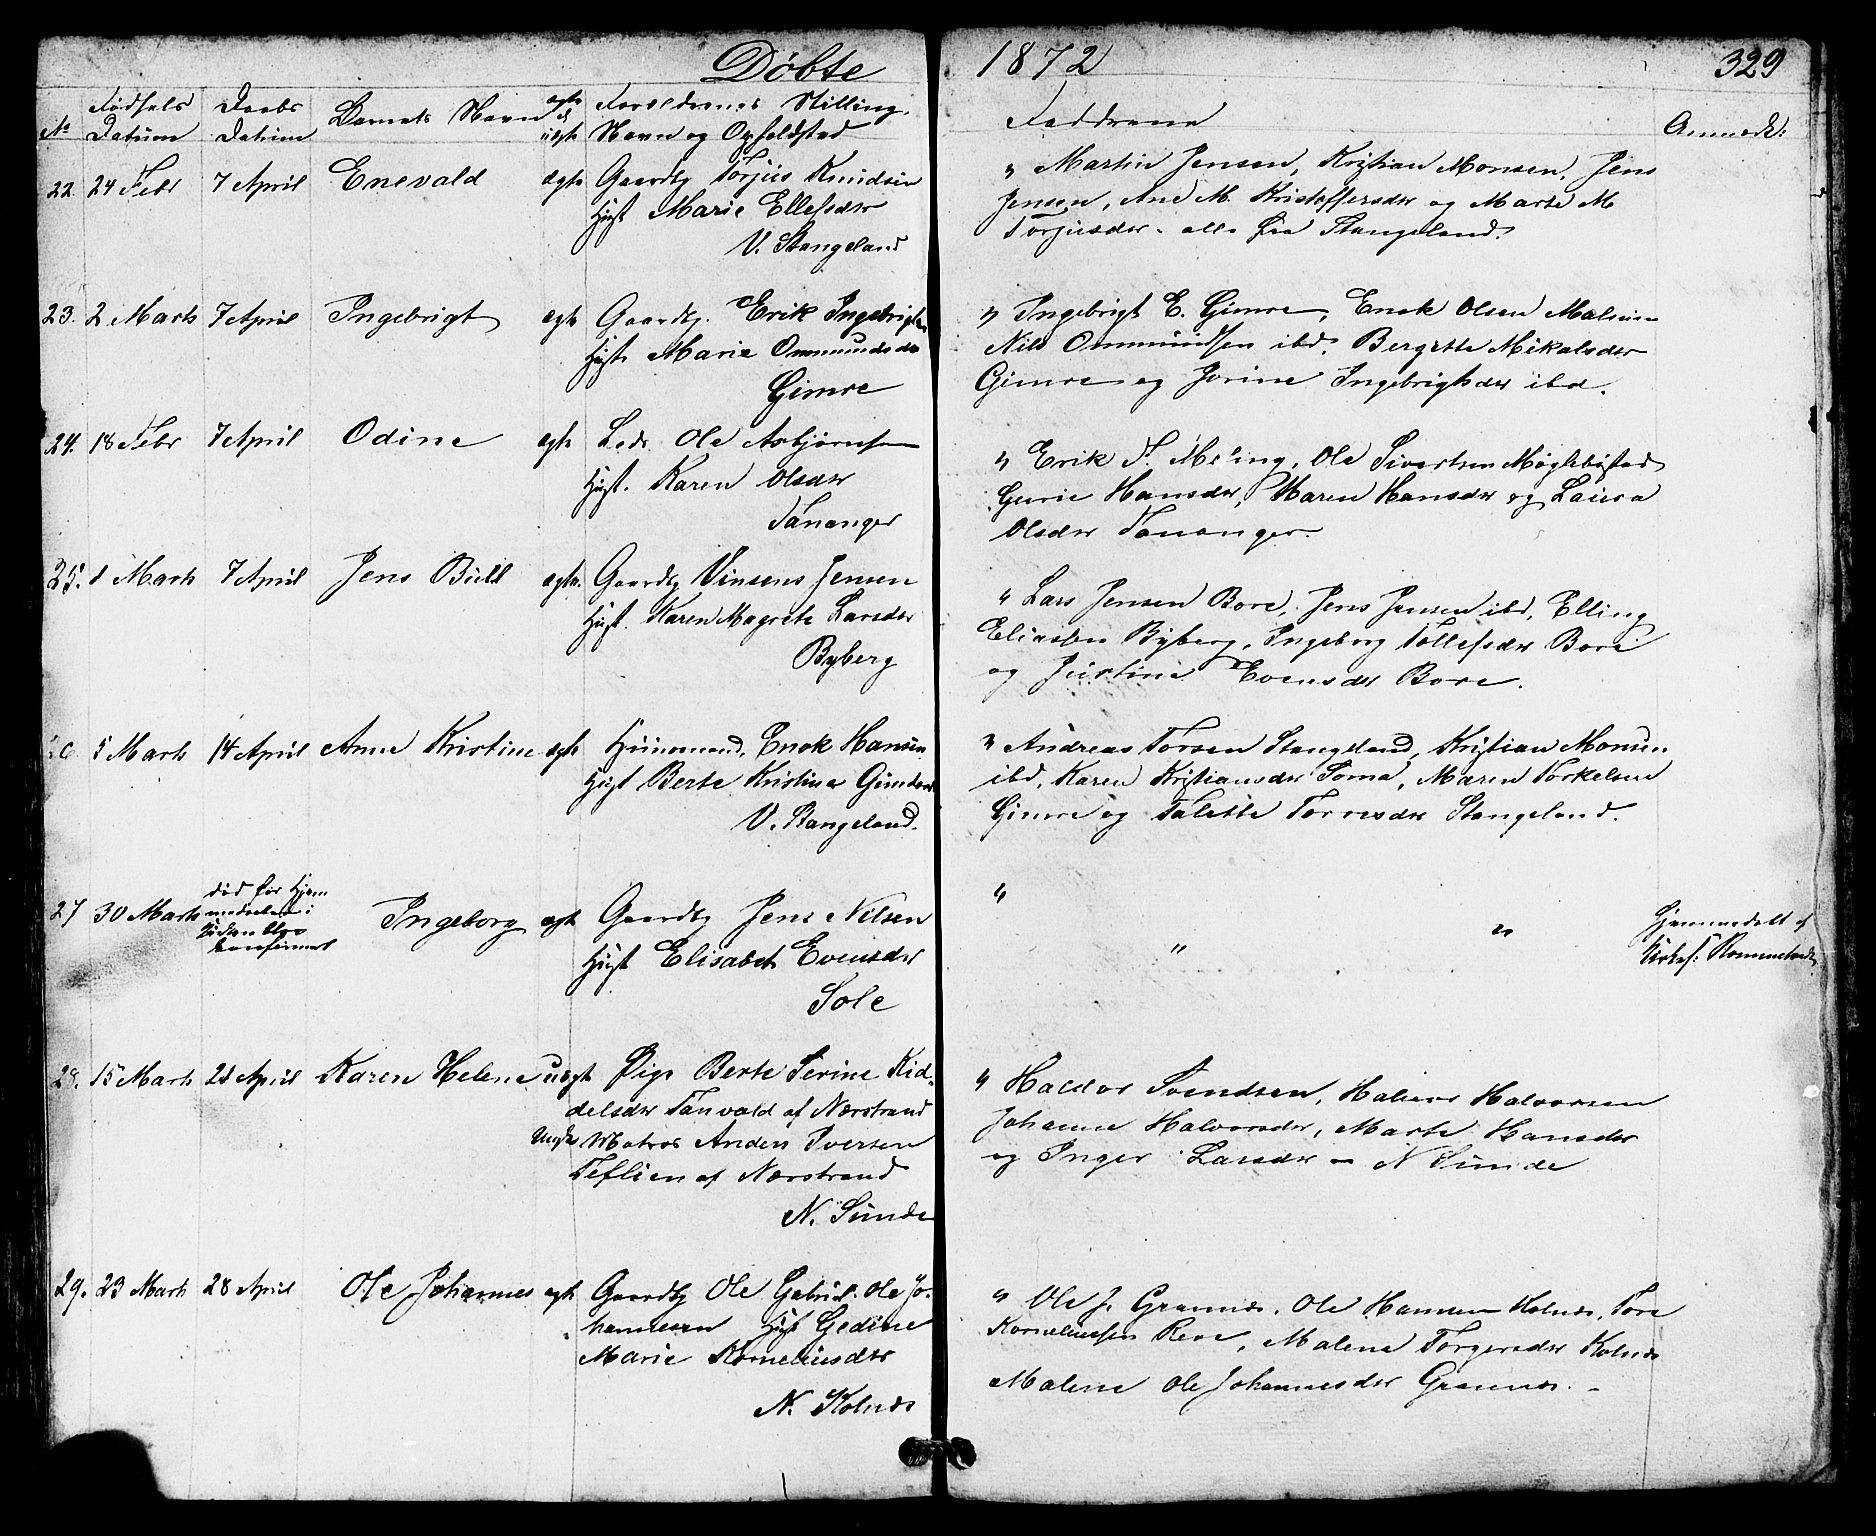 Döbte 1872 329
No Fødsels Datum Daabs Datum Barnets Navn ægte el uægte Forældrenes Stilling, Navn og Opholdsted Faddrene Anmærk:
22. 24 Febr 7 April Enevald ægte Gaardbg Torjus Knudsen
Hust Marie Ellefsdtr
V. Stangeland
" Martin Jensen, Kristian Monsen, Jens
Jensen, Ane M. Kristoffersdtr og Marte M
Torjusdtr - alle fra Stangeland.
23. 2 Marts 7 April Ingebrigt ægte Gaardbg. Erik Ingebrigtsen
Hust Marie Ommundsdtr
Gimre
" Ingebrigt E. Gimre, Enok Olsen Malmin
Nils Ommundsen ibd, Bergitte Mikalsdtr
Gimre og Jorine Ingebrigtsdtr ibd.
24. 18 Febr 7 April Odine ægte Leds Ole Asbjørnsen
Hust. Karen Olsdtr
Tananger
" Erik T. Meling, Ole Sivertsen Møglebøstad
Gurie Hansdtr, Maren Hansdtr og Laura
Olsdtr Tananger.
25. 1 Marts 7 April Jens Bull ægte. Gaardbg Vinsens Jensen
Hust. Karen Magrete Larsdtr
Byberg
" Lars Jensen Bore, Jens Jensen ibd, Elling
Eliassen Byberg, Ingeborg Tollefsdtr Bore
og Justine Evensdtr Bore.
26 5 Marts 14 April Anne Kristine ægte Huusmand, Enok Hansen
Hust Berte Kristine Gunders
V. Stangeland.
" Andreas Torsen Stangeland, Kristian Monsen
ibd, Karen Kristiansdtr Soma, Maren Torkelsen
Gimre og Talette Torresdtr Stangeland.
27 30 Marts død før Hjem
medaaben i
Kirken blev
konfirmet
Ingeborg ægte Gaardbg Jens Nilsen
Hust Elisabet Evensdtr
Sole
" " "
Hjemmedøbt af
Kirkes: Rommetvedt
28. 15 Marts 21 April Karen Helene uægt Pige Berte Serine Kid-
delsdtr Tanvald af Nærstrand
Ungks Matros Anders Iversen
Teflien af Nærstrand
N. Sunde
" Haldor Svendsen, Halvor Halvorsen
Johanne Halvorsdtr, Marte Hansdtr
og Inger Larsdtr - N Sunde
29. 23 Marts 28 April Ole Johannes ægte Gaardbg Ole Gabriel Ole Jo-
hannesen Hust Gedine
Marie Korneliusdtr
N. Kolnes
" Ole J. Grannes, Ole Hansen Kolnes, Tore
Korneliussen Reve, Malene Torgersdtr Kolnes
Malene Ole Johannesdtr Grannes. -